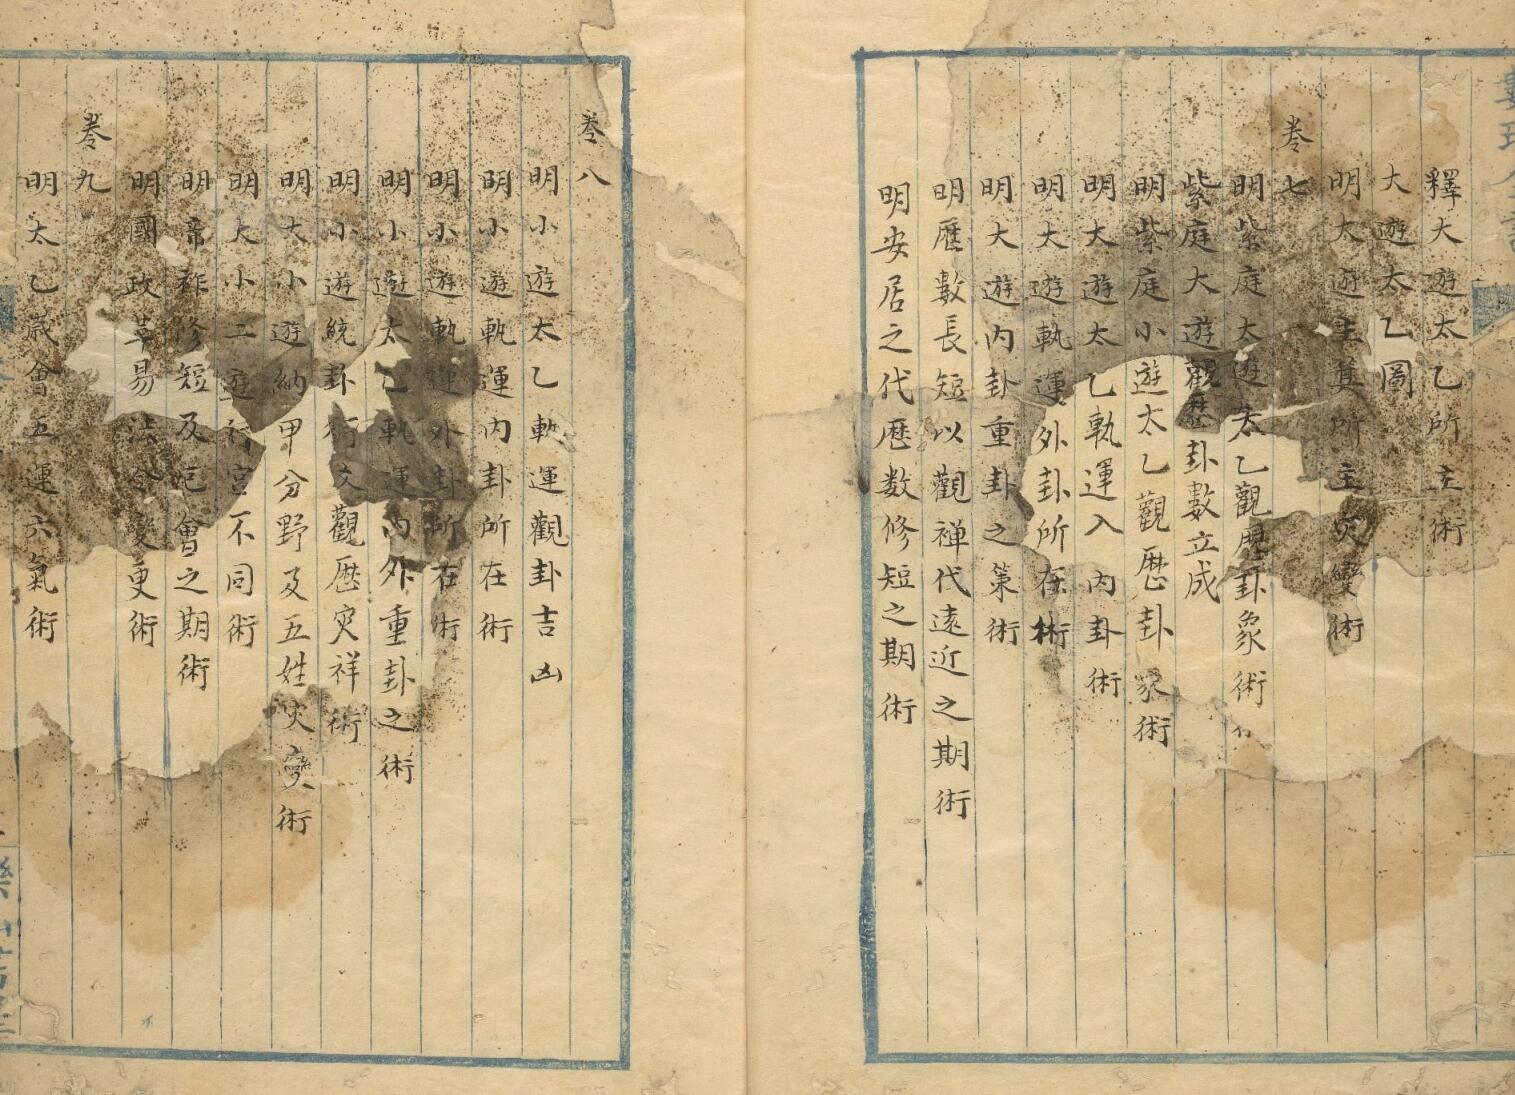 釋大遊太乙所主術
大遊太乙圖
明大遊主筭所主災變術
卷七
明紫庭大遊太乙觀歷卦象術
紫庭大遊觀歷卦數立成
明紫庭小遊太乙觀歷卦象術
明大遊太乙軌運入內卦術
明大遊軌運外卦所在術
明大遊內卦重卦之策術
明歷數長短以觀禅代遠近之期術
明安居之代歷数修短之期術
卷八
明小遊太乙軌運觀卦吉凶
明小遊軌運內卦所在術
明小遊軌運外卦所在術
明小遊太乙軌運內外重卦之術
明小遊統卦行爻觀歷災祥術
明大小遊納甲分野及五姓災變術
明大小二遊行宮不同術
明帝祚修短及厄會之期術
明國政革易法令變更術
卷九
明太乙歲會五運六氣術